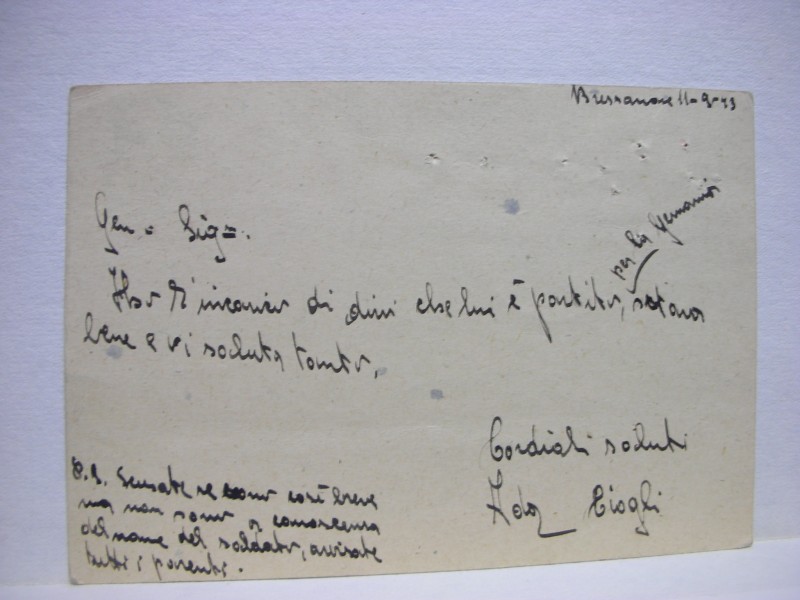 Bressanone 11-9-43
Gen= Sig=.
Ho l'incarico di dirvi che lui è partito, per la Germania
stava
bene e vi saluta tanto,
Cordiali saluti
Ada Ciogli
P.S. Scusate se sono così breve
ma non sono a conoscenza
del nome del soldato, avvisate
tutti i parenti.